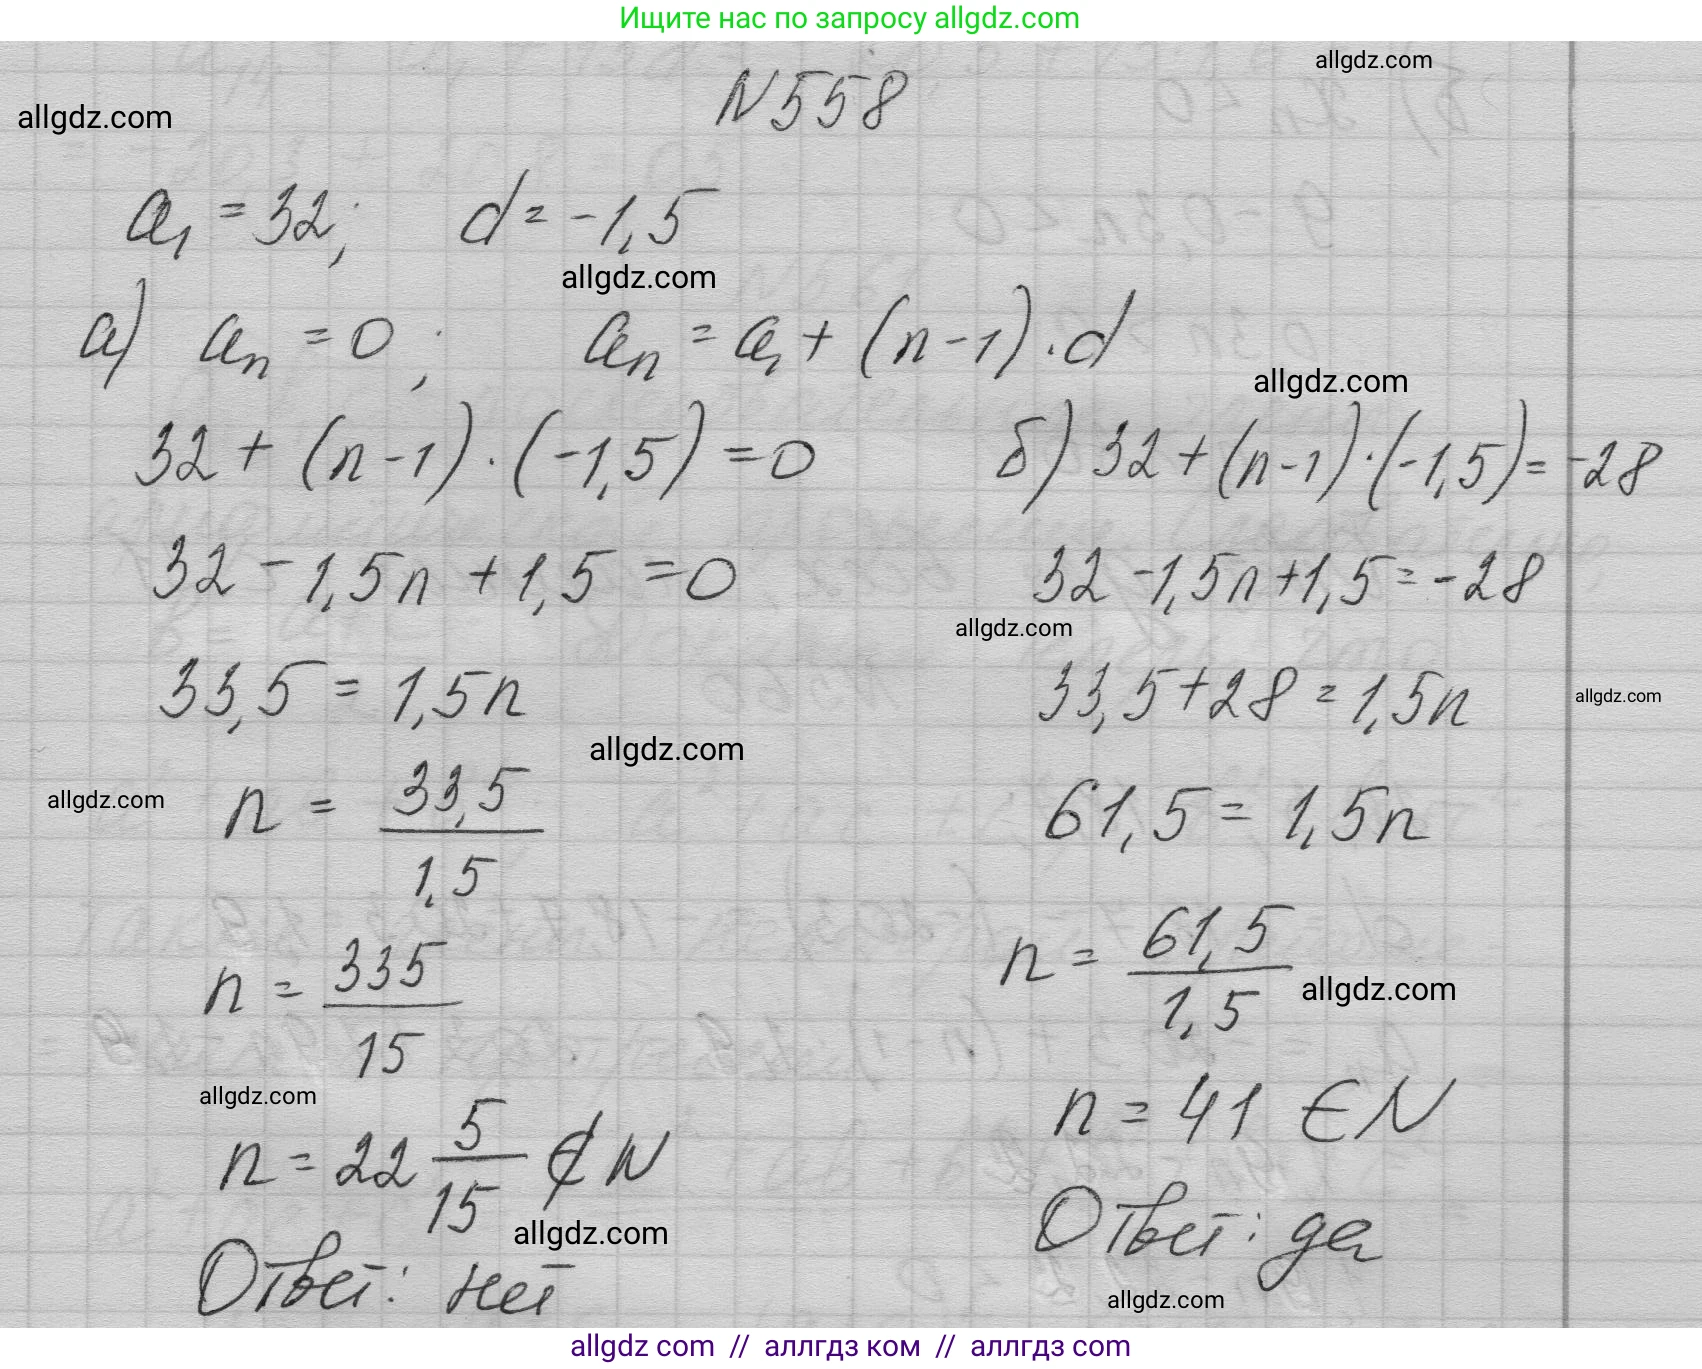 Ищите нас по запросу allgdz.com
allgdz.com
allgdz.com
N558
a₁ = 32; d = -1,5
allgdz.com
а) aₙ = 0; aₙ = a₁ + (n-1)·d
allgdz.com
32 + (n-1)·(-1,5) = 0
32 - 1,5n + 1,5 = 0
33,5 = 1,5n
allgdz.com
allgdz.com
n = 33,5/1,5
n = 335/15
allgdz.com
n = 22 5/15 ∉ N
allgdz.com
Ответ: нет
б) 32 + (n-1)·(-1,5) = -28
32 - 1,5n + 1,5 = -28
allgdz.com
33,5 + 28 = 1,5n
allgdz.com
61,5 = 1,5n
n = 61,5/1,5
allgdz.com
n = 41 ∈ N
Ответ: да
allgdz.com
allgdz com // аллгдз ком // аллгдз com